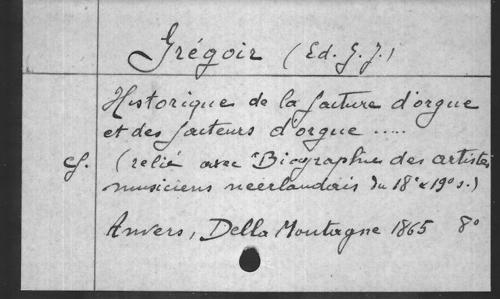 Grégoir (Ed. G. J.)
Historique de la facture d'orgue
et des facteurs d'orgue .....
(relié avec "Biographies des artistes
musiciens neerlandais du 18e & 19e s.)
Anvers, Della Montagne 1865 8o